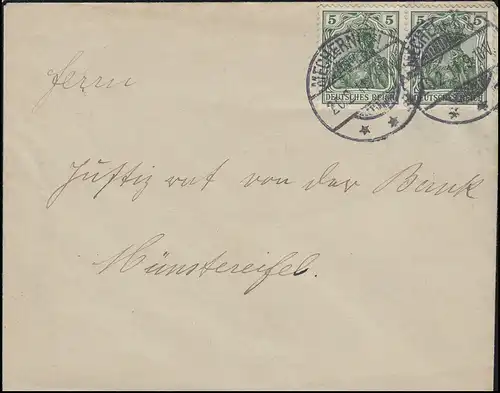 5 5 5 5
MECHERNICH MECHERNICH
DEUTSCHES REICH DEUTSCHES REICH
Herrn
Justizrat von der Bank
Münstereifel.